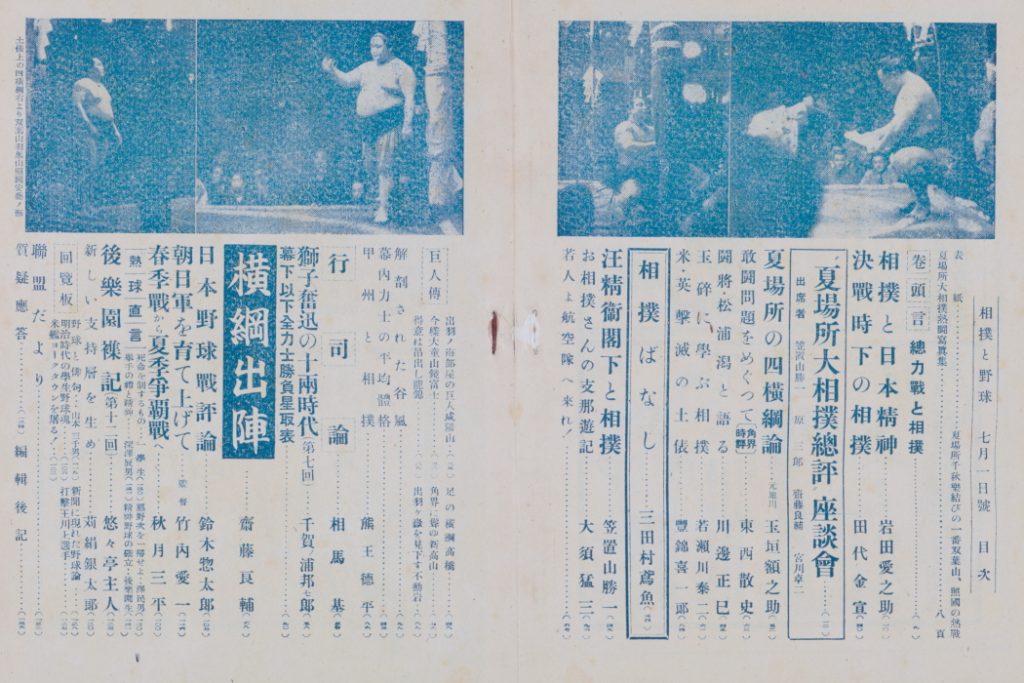 相撲と野球 七月一日號 目次
表紙…………夏場所千秋樂結びの一番双葉山、照國の熱戰
夏場所大相撲熱鬪寫眞集…………八頁
卷頭言 總力戰と相撲
相撲と日本精神……岩田愛之助
決戰時下の相撲……田代金宣
夏場所大相撲總評 座談會
出席者 笠置山勝一 原三郎 齋藤良輔 宮川卓二
夏場所の四横綱論……玉垣額之助
敢鬪問題をめぐつて 角界時評……東西散史
鬪將松浦潟と語る……川邊正巳
玉碎に學ぶ相撲……若瀬川泰二
米・英擊滅の土俵……豐錦喜一郎
相撲ばなし……三田村鳶魚
汪精衞閣下と相撲……笠置山勝一
お相撲さんの支那遊記……大須猛三
若人よ航空隊へ來れ!
土俵上の四横綱右より双葉山羽黑山照國安藝ノ海
巨人傳
出羽ノ海部屋の巨人
今樣大童山鏡富士
足の横綱高橋
出羽ケ嶽を見下す不動岩
解剖された谷風
幕内力士の平均體格
甲州と相撲……熊王德平
行司論……相馬基
獅子奮迅の十兩時代(第七回)……千賀ノ浦邦七郎
幕下以下全力士勝負星取表
横綱出陣……齋藤良輔
日本野球戰評論……鈴木惣太郎
朝日軍を育て上げて……監督 竹内愛一
春季戰から夏季爭覇戰へ……秋月三平
熱球直言
後樂園襍記(第十二回)……悠々亭主人
新しい支持層を生め……苅絹銀太郎
回覽板
野球と俳句……山本三千男
明治時代の學生野球魂
米艦ヨークタウンを屠る!
新聞に現れた野球論
打擊王川上選手
聯盟だより
質疑應答…………編輯後記